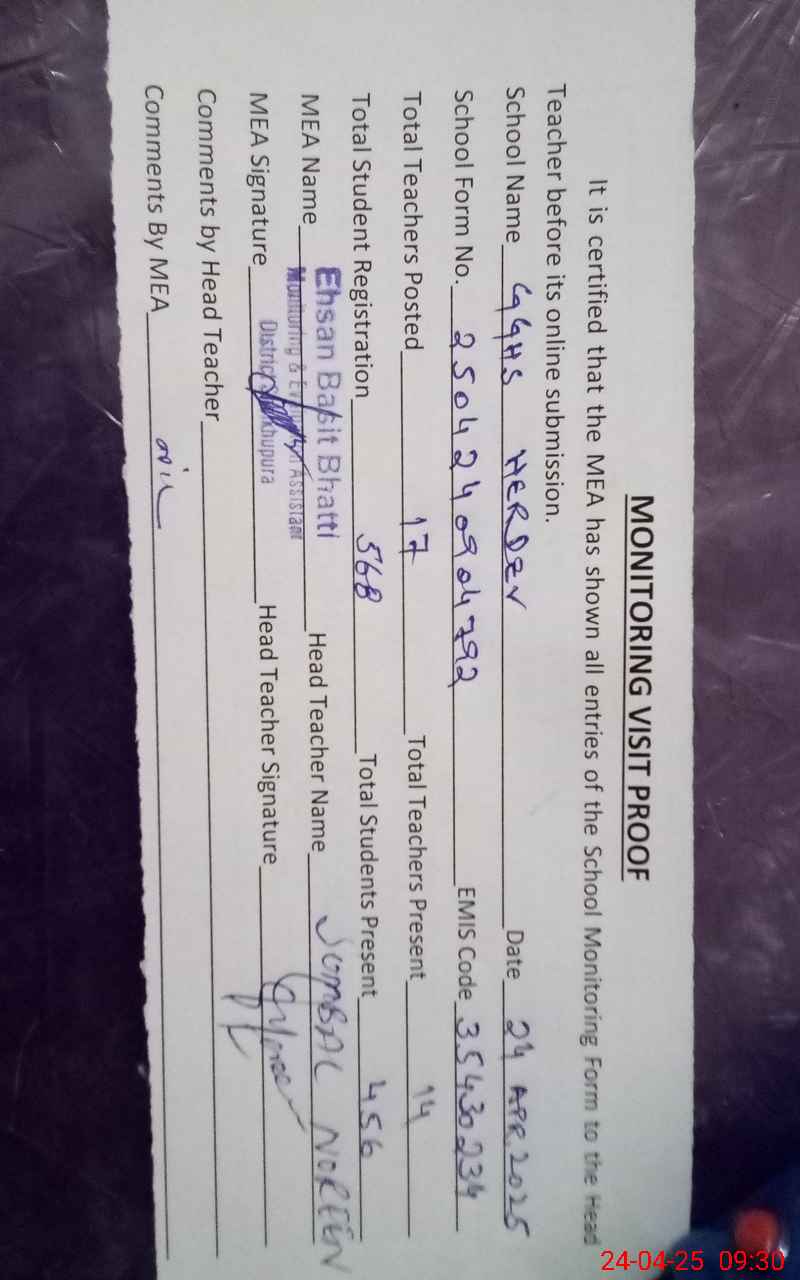 MONITORING VISIT PROOF
It is certified that the MEA has shown all entries of the School Monitoring Form to the Head
Teacher before its online submission.
School Name GGHS HERDEV Date 24 APR 2025
School Form No. 250424090 4792 EMIS Code 35430234
Total Teachers Posted 17 Total Teachers Present 14
Total Student Registration 568 Total Students Present 456
MEA Name Ehsan Basit Bhatti Head Teacher Name SUMBAL NOREEN
Monitoring & Evaluation Assistant
MEA Signature District Sheikhupura Head Teacher Signature
Comments by Head Teacher
Comments By MEA nil
24-04-25 09:30